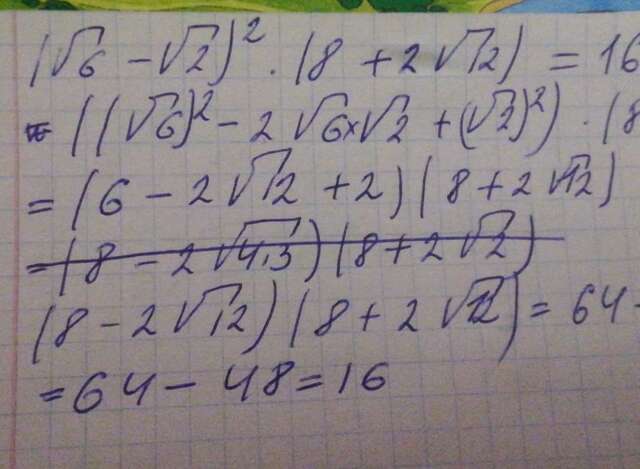 (√6 − √2)² · (8 + 2√12) = 16
= ((√6)² − 2√6×√2 + (√2)²) · (8
= (6 − 2√12 + 2)(8 + 2√12)
= (8 − 2√4·3)(8 + 2√2)
(8 − 2√12)(8 + 2√12) = 64 −
= 64 − 48 = 16